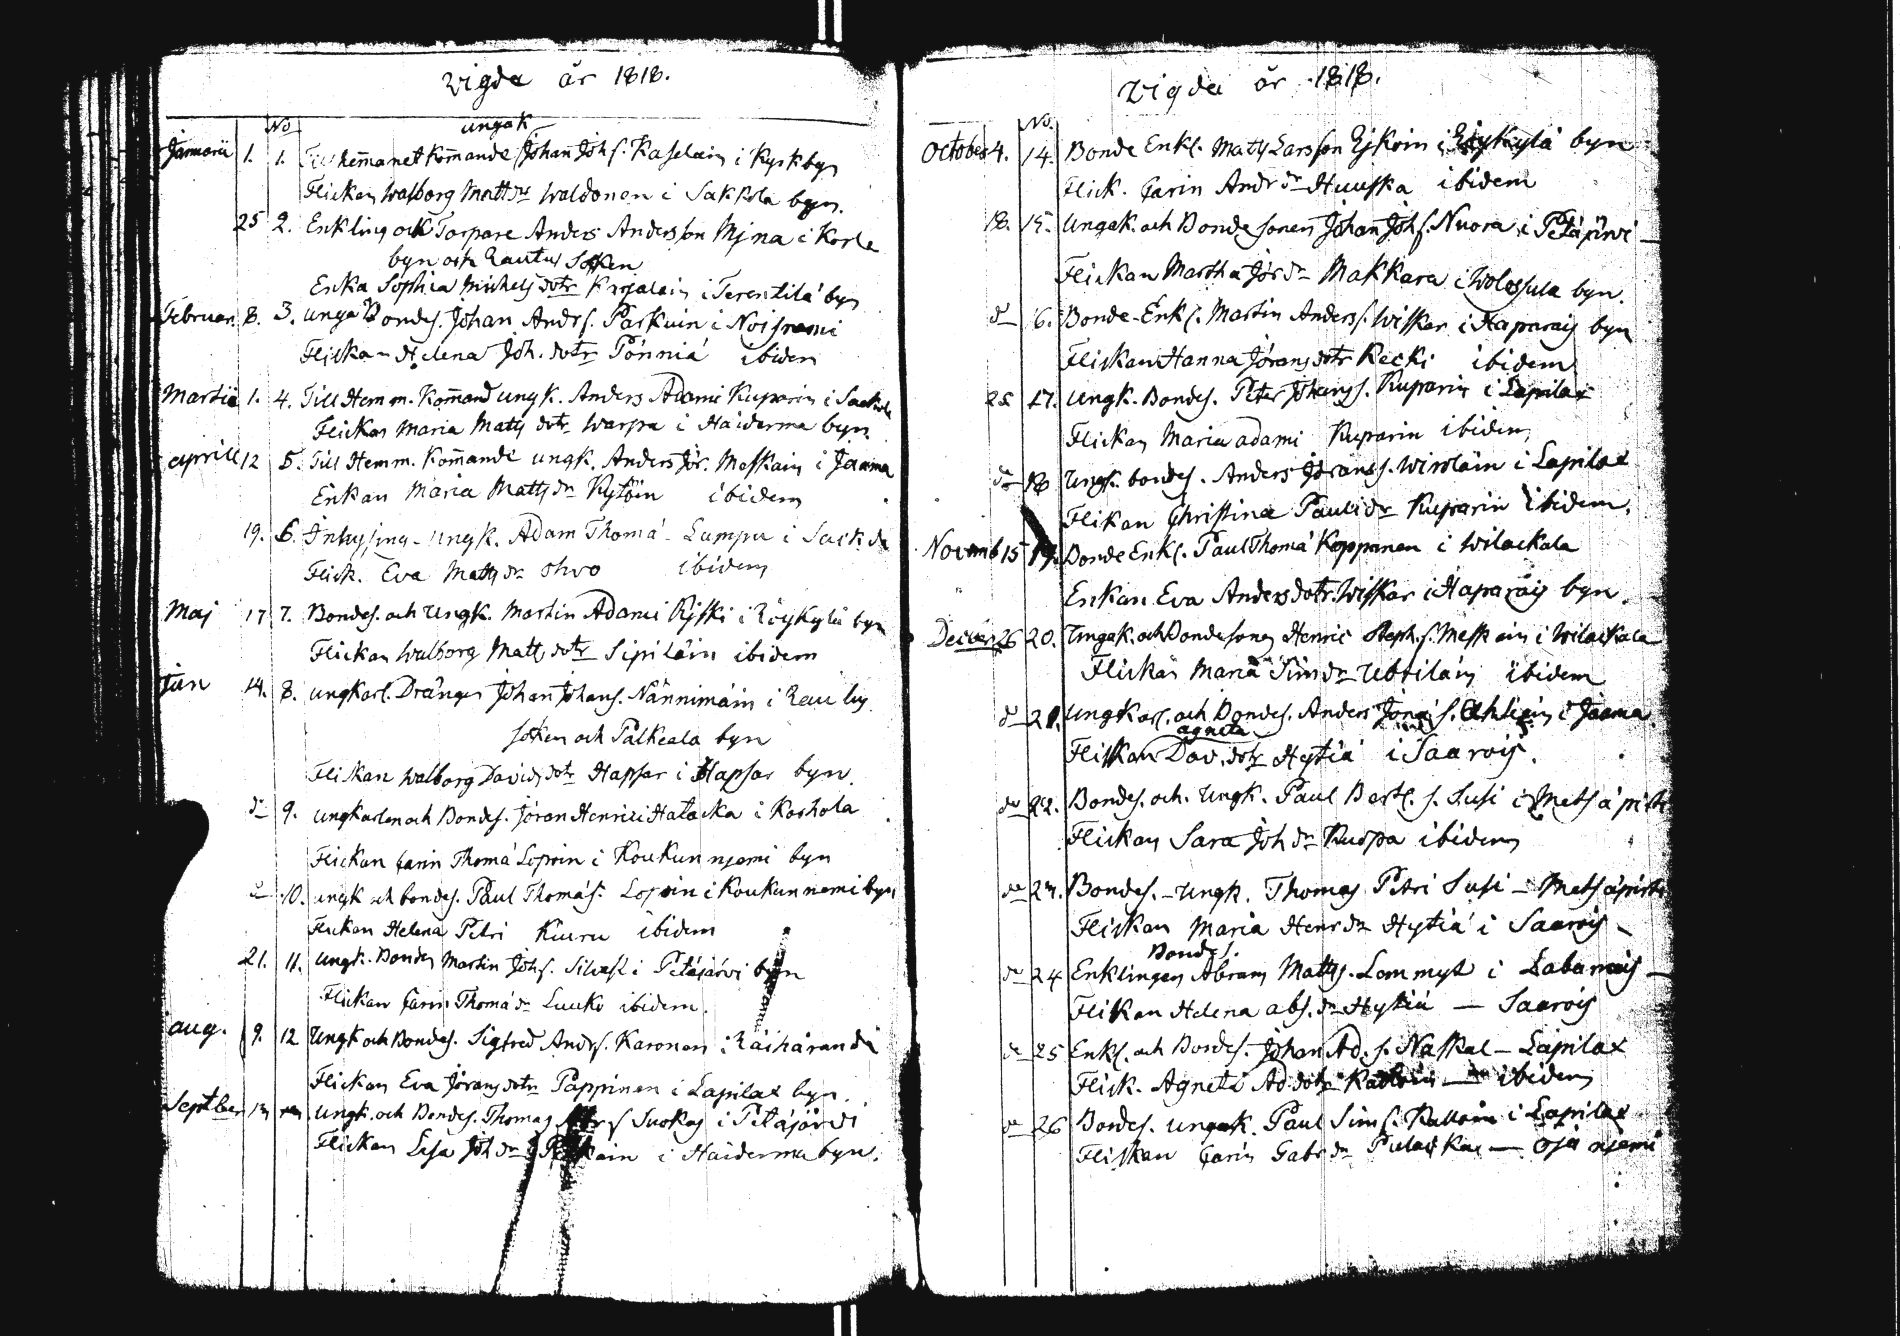 Vigde år 1818.
No
ungak
Januarii 1. 1. Till hem̄anet kom̄ande Johan Johs. Kaselain i Kyrkbyn
Flickan Walborg Mattsdr Waldonen i Sakkola byn.
25 2. Enkling och Torpare Anders Andersson Mjna i Korle
byn och Rautus Soken
Enka Sophia Michelsdotr Karjalain i Terentilä byn
Februar. 8. 3. unga Bondes. Johan Andrs. Parkuin i Noisniemi
Flickan Helena Joh. dotr Pönniä ibidem
Martii 1. 4. Till Hemm. Kom̄and ungk. Anders Adami Kuparin i Sackola
Flickan Maria Matts dotr Warpa i Haiderma byn.
aprill 12 5. Till Hemm. Kom̄ande ungk. Anders Jör. Meskain i Jaama
Enkan Maria Matts dr Kytöin ibidem
19. 6. Inhysing-ungk. Adam Thomä Lumpu i Sackola
Flick. Eva Matts dr Ohvo ibidem
Maj 17 7. Bondes. och Ungk. Martin Adami Kiski i Röykylä byn
Flickan Walborg Matts dotr Sipiläin ibidem
Jun 14. 8. ungkarl. Drängen Johan Johans. Nännimäin i Rautus
Soken och Palkeala byn
Flickan Walborg Davids dotr Hapsar i Hapsar byn.
do 9. ungkarlen och Bondes. Jöran Henrici Hatacka i Koshola
Flickan Carin Thomä Loproin i Koukunnjemi byn
do 10. ungk och bondes. Paul Thomäs. Lopoin i Koukunnemi byn
Flickan Helena Petri Kiuru ibidem
21. 11. Ungk. Bondes Martin Johs. Silvast i Petäjärvi byn
Flickan Carin Thomä dr Luuko ibidem.
aug. 9. 12 Ungk och Bondes. Sigfred Andrs. Karonen i Räihäranda
Flickan Eva Jörans dotr Pappinen i Lapilax byn.
Septber 13 13 Ungk. och Bondes. Thomas s Suokas i Petäjärvi
Flickan Lisa Joh dr i Haiderma byn.
Vigde år 1818.
No.
October 4. 14. Bonde Enkl. Matts Larsson Ijkoin i Röykylä byn
Flick. Carin Andr dr Huuska ibidem
18. 15. Ungak. och Bonde sonen Johan Johs. Nuora i Petäjärvi —
Flickan Martha Jör dr Makkara i Wolossula byn.
do 16. Bonde-Enkl. Martin Anders. Wiskar i Haparais byn
Flickan Hanna Jörans dotr Recki ibidem
25 17. Ungk. Bondes. Peter Johans s. Kuparin i Lapilax
Flickan Maria adami Kuparin ibidem
do 18 Ungk. bondes. Anders Jörans s. Wiroläin i Lapilax
Flikan Christina Pauli dr Kuparin ibidem.
Novemb 15 19. Bonde Enkl. Paul Thomä Koppanen i Wilackala
Enkan Eva Anders dotr. Wiskar i Haparais byn.
December 26 20. Ungak. och Bondesonen Henric Steph. s. Meskain i Wilackala
Flickan Maria Sim dr Ubbiläin ibidem
do 21. Ungkarl. och Bondes. Anders Jöran s. Ahliain i Jaama
agneta
Flickan Dav. dotr Hytiä i Saarois.
do 22. Bondes. och. Ungk. Paul Bertl. s. Susi i Metsäpirti
Flickan Sara Joh dr Kuopa ibidem
do 23. Bondes.-Ungk. Thomas Petri Susi — Metsäpirti
Flickan Maria Henr dr Hytiä i Saarois —
Bondes.
do 24 Enklingen Abram Matts s. Lommyt i Labanais —
Flickan Helena abs. dr Hytiä — Saarois
do 25 Enkl. och Bondes. Johan Ad. s. Naskal — Lapilax
Flick. Agneta Ad dotr — ibidem
do 26 Bondes. Ungak. Paul Sim s. Kalloin i Lapilax
Flickan Carin Gabr dr Pulackas — Ojaniemi